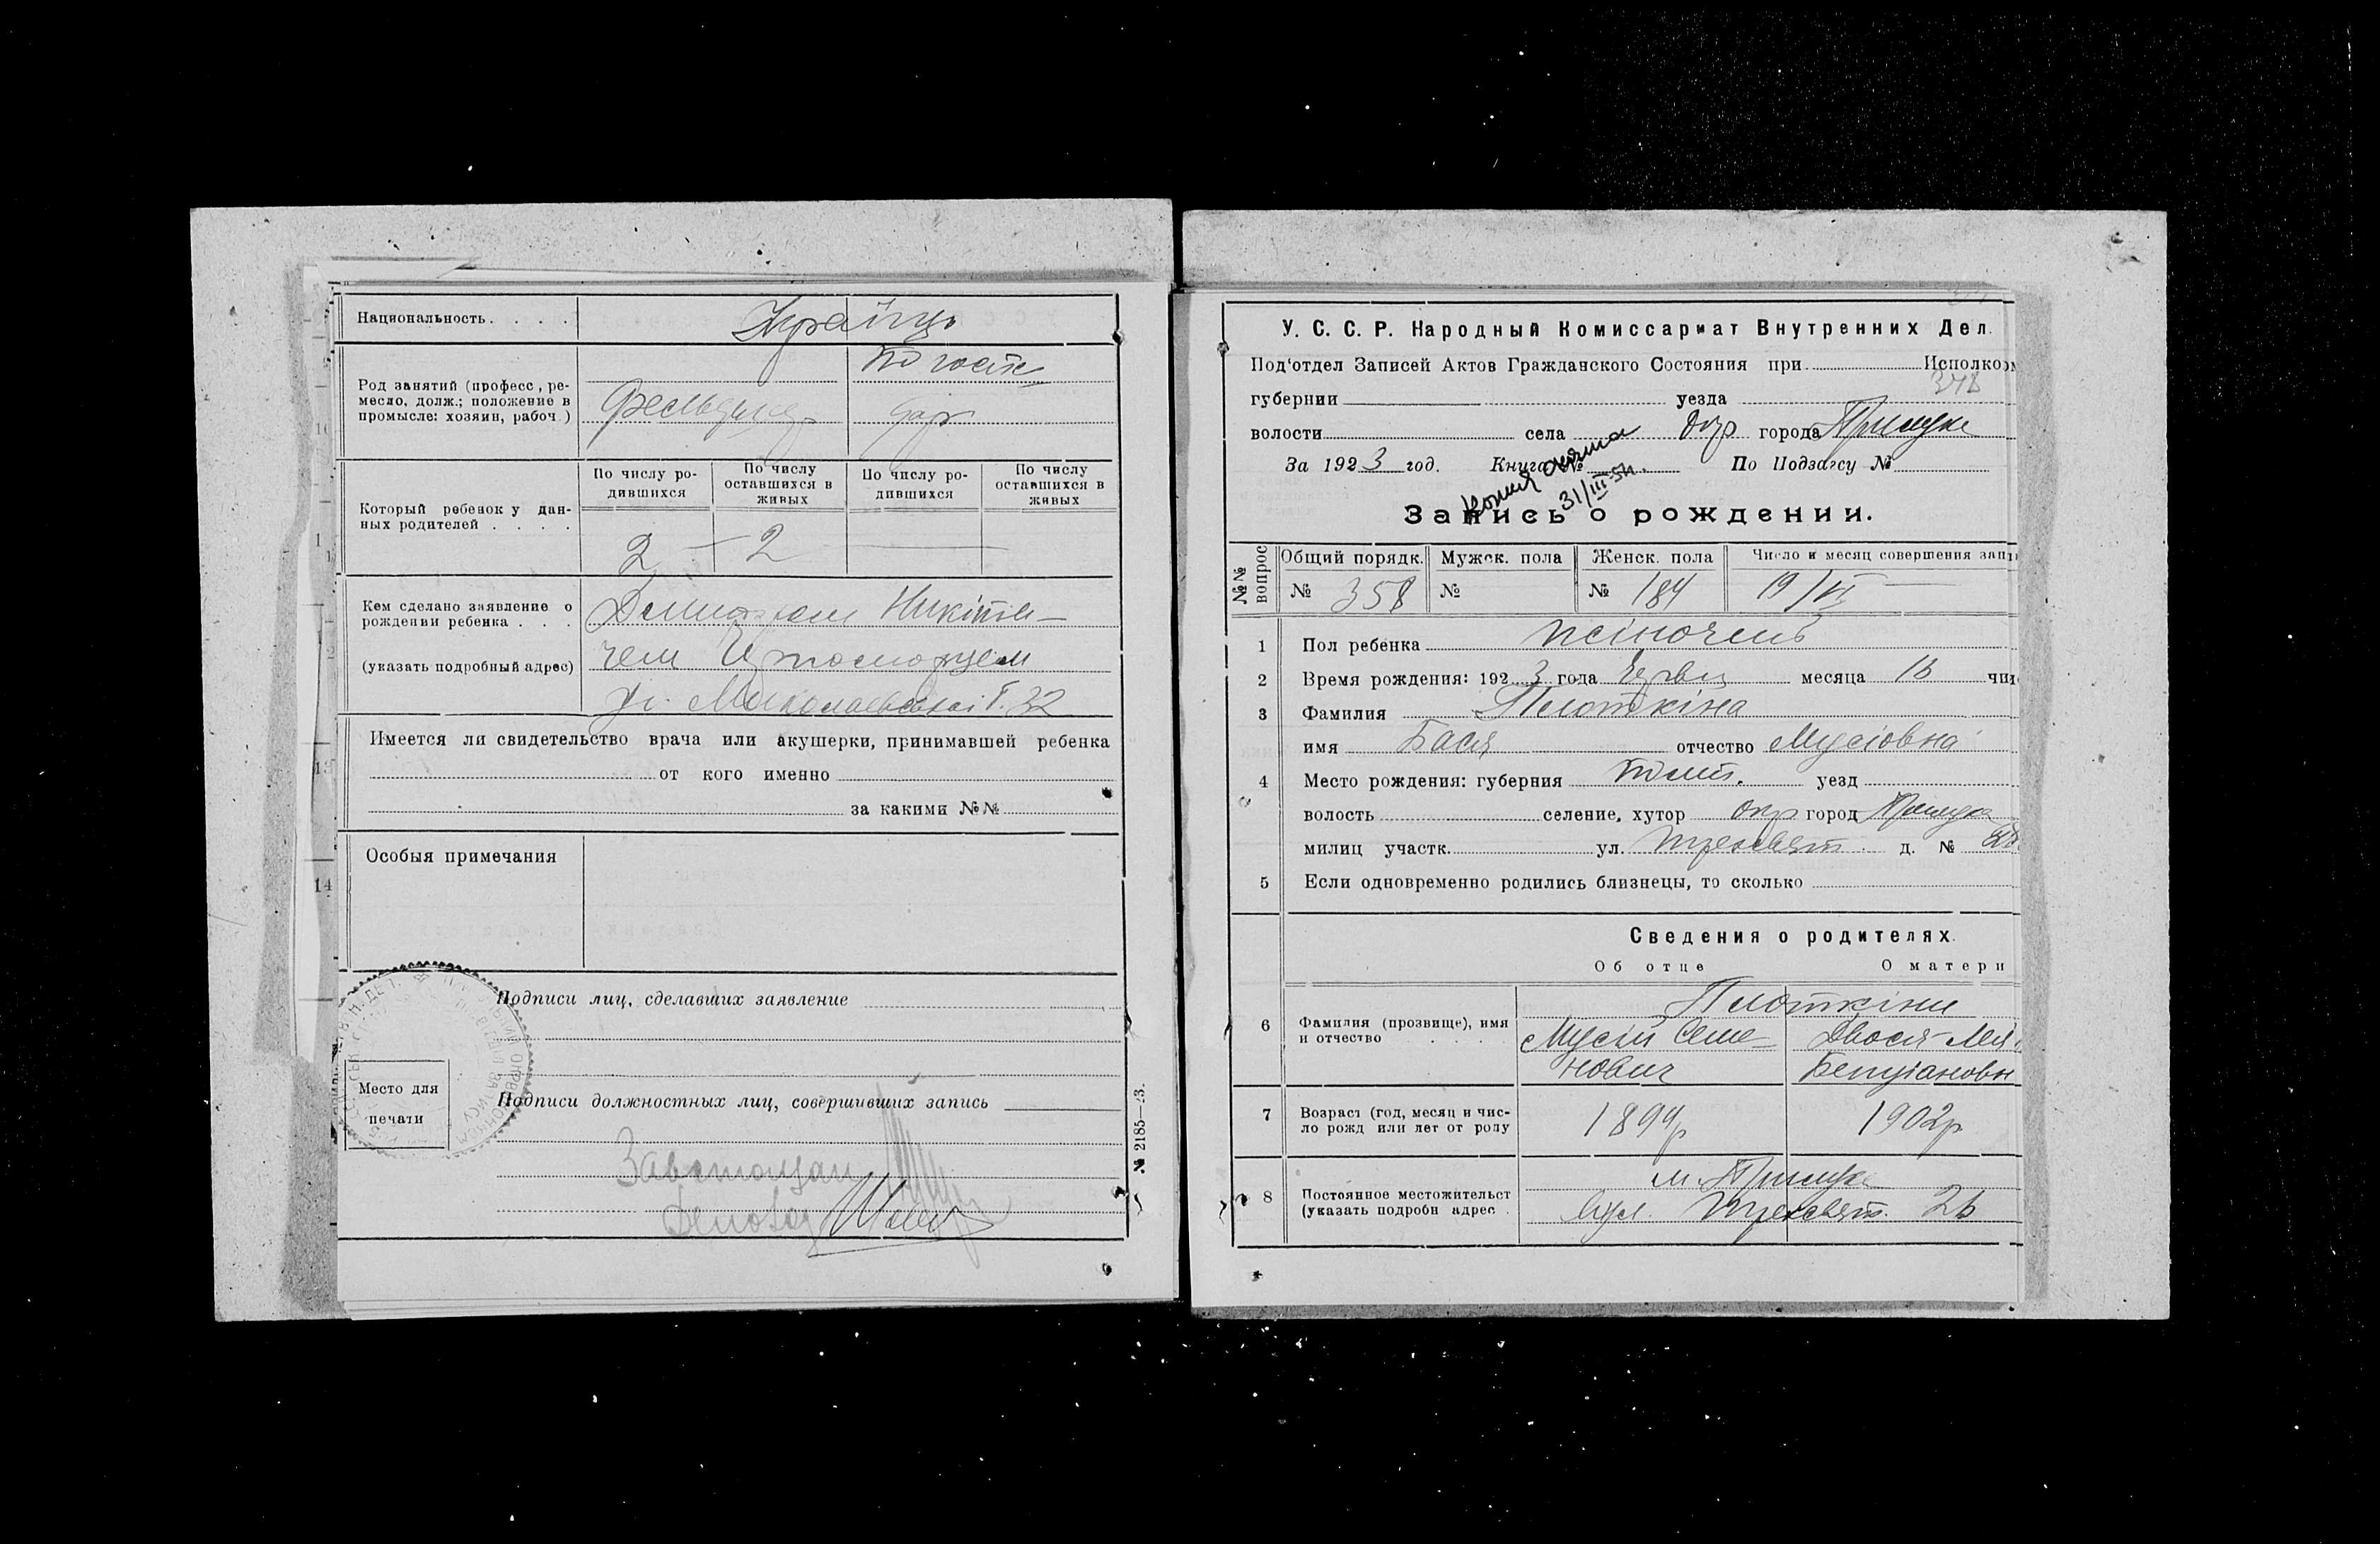 Национальность. . . . .
Українці
Род занятий (професс, ре-
месло, долж.; положение в
промысле: хозяин, рабоч.)
По госпо
Фельдшер
дар
Который ребенок у дан-
ных родителей . . . .
По числу ро-
дившихся
По числу
оставшихся в
живых
По числу ро-
дившихся
По числу
оставшихся в
живых
2 — 2
Кем сделано заявление о
рождении ребенка . . .
(указать подробный адрес)
Никіти-
чем
32
Имеется ли свидетельство врача или акушерки, принимавшей ребенка
от кого именно
за какими №№
Особыя примечания
Подписи лиц, сделавших заявление
Место для
печати
Подписи должностных лиц, совершивших запись
Завстолом
Діловод
№ 2185—23.
У. С. С. Р. Народный Комиссариат Внутренних Дел.
Под'отдел Записей Актов Гражданского Состояния при Исполком
348
губернии уезда
волости села окр города Прилуки
За 1923 год. Книга № По Подзагсу №
Копия
31/III-51.
Запись о рождении.
№№ вопрос
Общий порядк. Мужск. пола Женск. пола Число и месяц совершения запи
№ 358 № № 184 19/VI
1 Пол ребенка жіночень
2 Время рождения: 1923 года Червц месяца 16 чи
3 Фамилия Плоткіна
имя Бася отчество Мусіовна
4 Место рождения: губерния Полт. уезд
волость селение, хутор окр город Прилука
милиц участк. ул. Трехсвят. д. № 26
5 Если одновременно родились близнецы, то сколько
Сведения о родителях.
Об отце О матери
6 Фамилия (прозвище), имя
и отчество . . . .
Плоткіни
Мусій Семе-
нович
Двося-Лея
Бенціановн
7 Возраст (год, месяц и чис-
ло рожд или лет от роду
1899р 1902р
8 Постоянное местожительст
(указать подробн адрес .
м. Прилука
вул. Трехсвят. 26